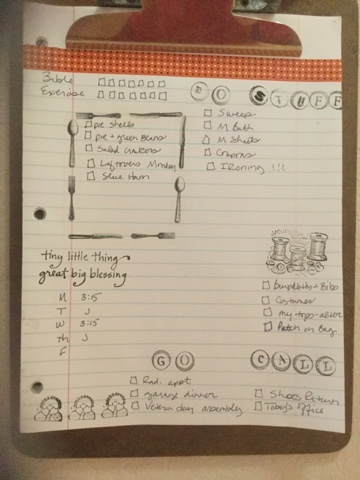 Bible
Exercise
DO STUFF
pie shells
pie + green beans
Salad crackers
Leftovers Monday
Slice Ham
Sweep
M Bath
M Sheets
Ironing !!!
tiny little thing
great big blessing
M 3:15
T J
W 3:15
Th J
F
Burpbibs + Bibs
Costumes
my tops-alter
Patch on Bag
GO
Rad. appt
dinner
Veterans day assembly
CALL
Shoes Return
Toby's Office